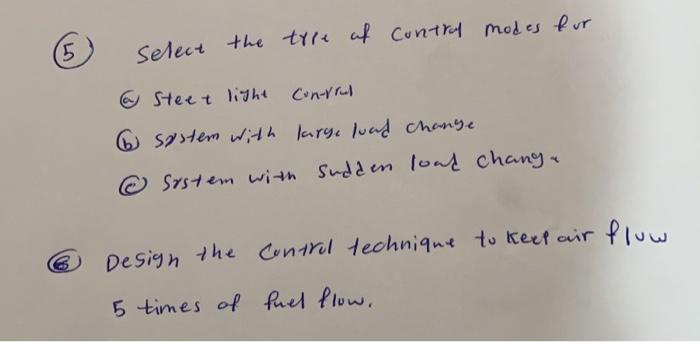 5 Select the type of control modes for
a Steet light control
b System with large load change
c System with sudden load change
6 Design the control technique to keep air flow
5 times of fuel flow.